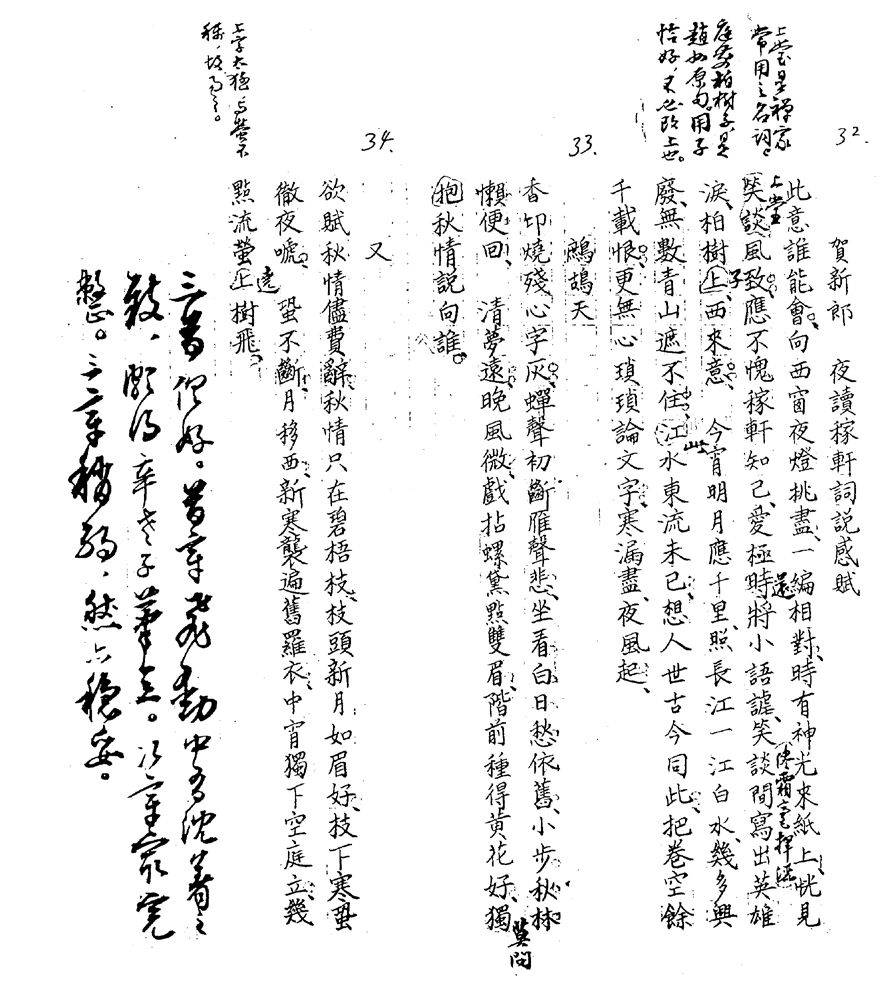 32.
上堂是禪家
常用之名詞，
庭前柏樹子是
趙州原句。用子
恰好，不必改上也。
賀新郎　夜讀稼軒詞説感賦
此意誰能會。向西窗夜燈挑盡、一編相對。時有神光來紙上、恍見
上堂
還
笑談風致。應不愧稼軒知己。愛極時將小語謔、笑談間寫出英雄
淚。柏樹上、西來意。　今宵明月應千里。照長江一江白水、幾多興
子
廢。無數青山遮不住、江水東流未已。想人世古今同此。把卷空餘
千載恨、更無心瑣瑣論文字。寒漏盡、夜風起。
33.
鷓鴣天
香印燒殘心字灰。蟬聲初斷雁聲悲。坐看白日愁依舊、小步秋林
懶便回。　清夢遠、晚風微。戲拈螺黛點雙眉。階前種得黃花好、獨
莫問
抱秋情説向誰。
34.
又
欲賦秋情儘費辭。秋情只在碧梧枝。枝頭新月如眉好、枝下寒蛩
徹夜嗁。　蛩不斷、月移西。新寒襲遍舊羅衣。中宵獨下空庭立、幾
點流螢上樹飛。
遶
上字太強與螢不
稱，故易之。
三首俱好。首章飛動中有沈著之
致，頗得辛老子筆意。次章最完
整。三章稍弱，然亦穩妥。